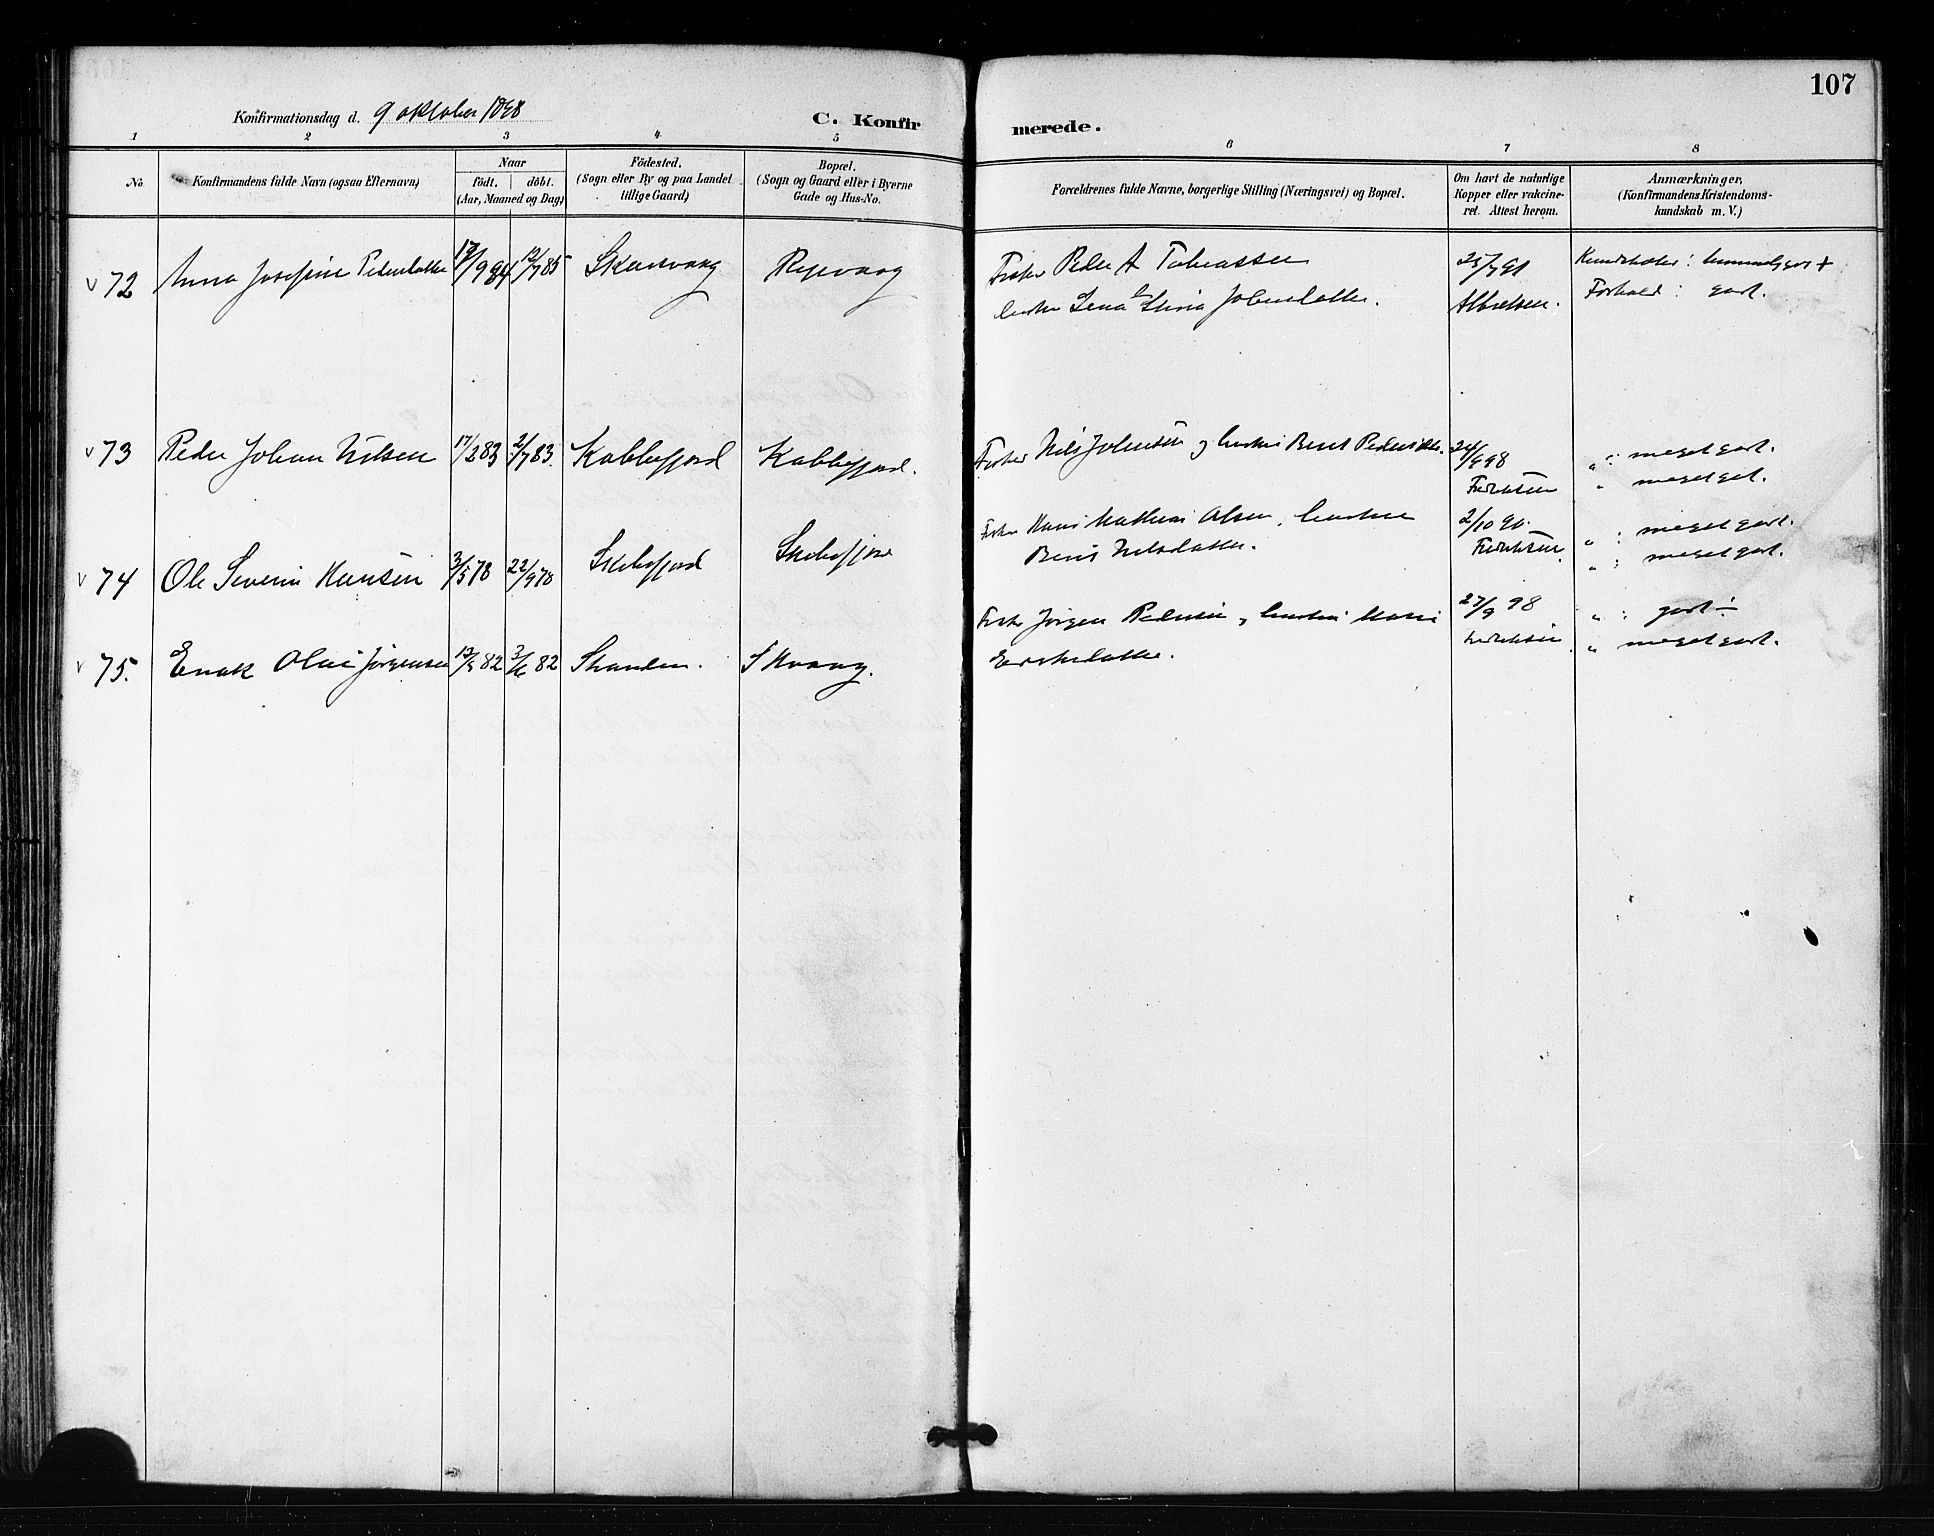 107
Konfirmationsdag d. 9 oktober 1898
C. Konfir
merede.
1 2 3 4 5 6 7 8
No.
Konfirmandens fulde Navn (ogsaa Efternavn)
Naar
födt. döbt.
(Aar, Maaned og Dag)
Födested.
(Sogn eller By og paa Landet
tillige Gaard)
Bopæl.
(Sogn og Gaard eller i Byerne
Gade og Hus-No.
Forældrenes fulde Navne, borgerlige Stilling (Næringsvei) og Bopæl.
Om havt de naturlige
Kopper eller vakcine-
ret. Attest herom.
Anmærkninger,
(Konfirmandens Kristendoms-
kundskab m. V.)
v 72 Anna Josefine Pedersdatter 17/9 84 12/7 85 Skarsvaag Repvaag
Fisker Peder A Tobiassen
Lena Johnsdatter.
25/7 91
Albertsen.
Kundskaber:
Forhold: godt.
v 73 Peder Johan Nilsen 17/2 83 2/7 83. Kobbefjord Kobbefjord.
Fisker Nils Johnsen og hustru Berit Pedersdtr.
24/9 98
Fredriksen
" : meget godt.
" meget godt.
v 74 Ole Severin Hansen 3/5 78 22/9 78
Fisker Hans Mathias Olsen, hustru
Berit Nilsdatter.
2/10 90.
Fredriksen.
" : meget godt.
" : meget godt.
v 75. Enok Olai Jørgensen 82 3/6 82 Stranden. Skvaag.
Fisker Jørgen Pedersen, hustru
Eriksdatter.
27/9 98
Fredriksen
" : godt
" meget godt.